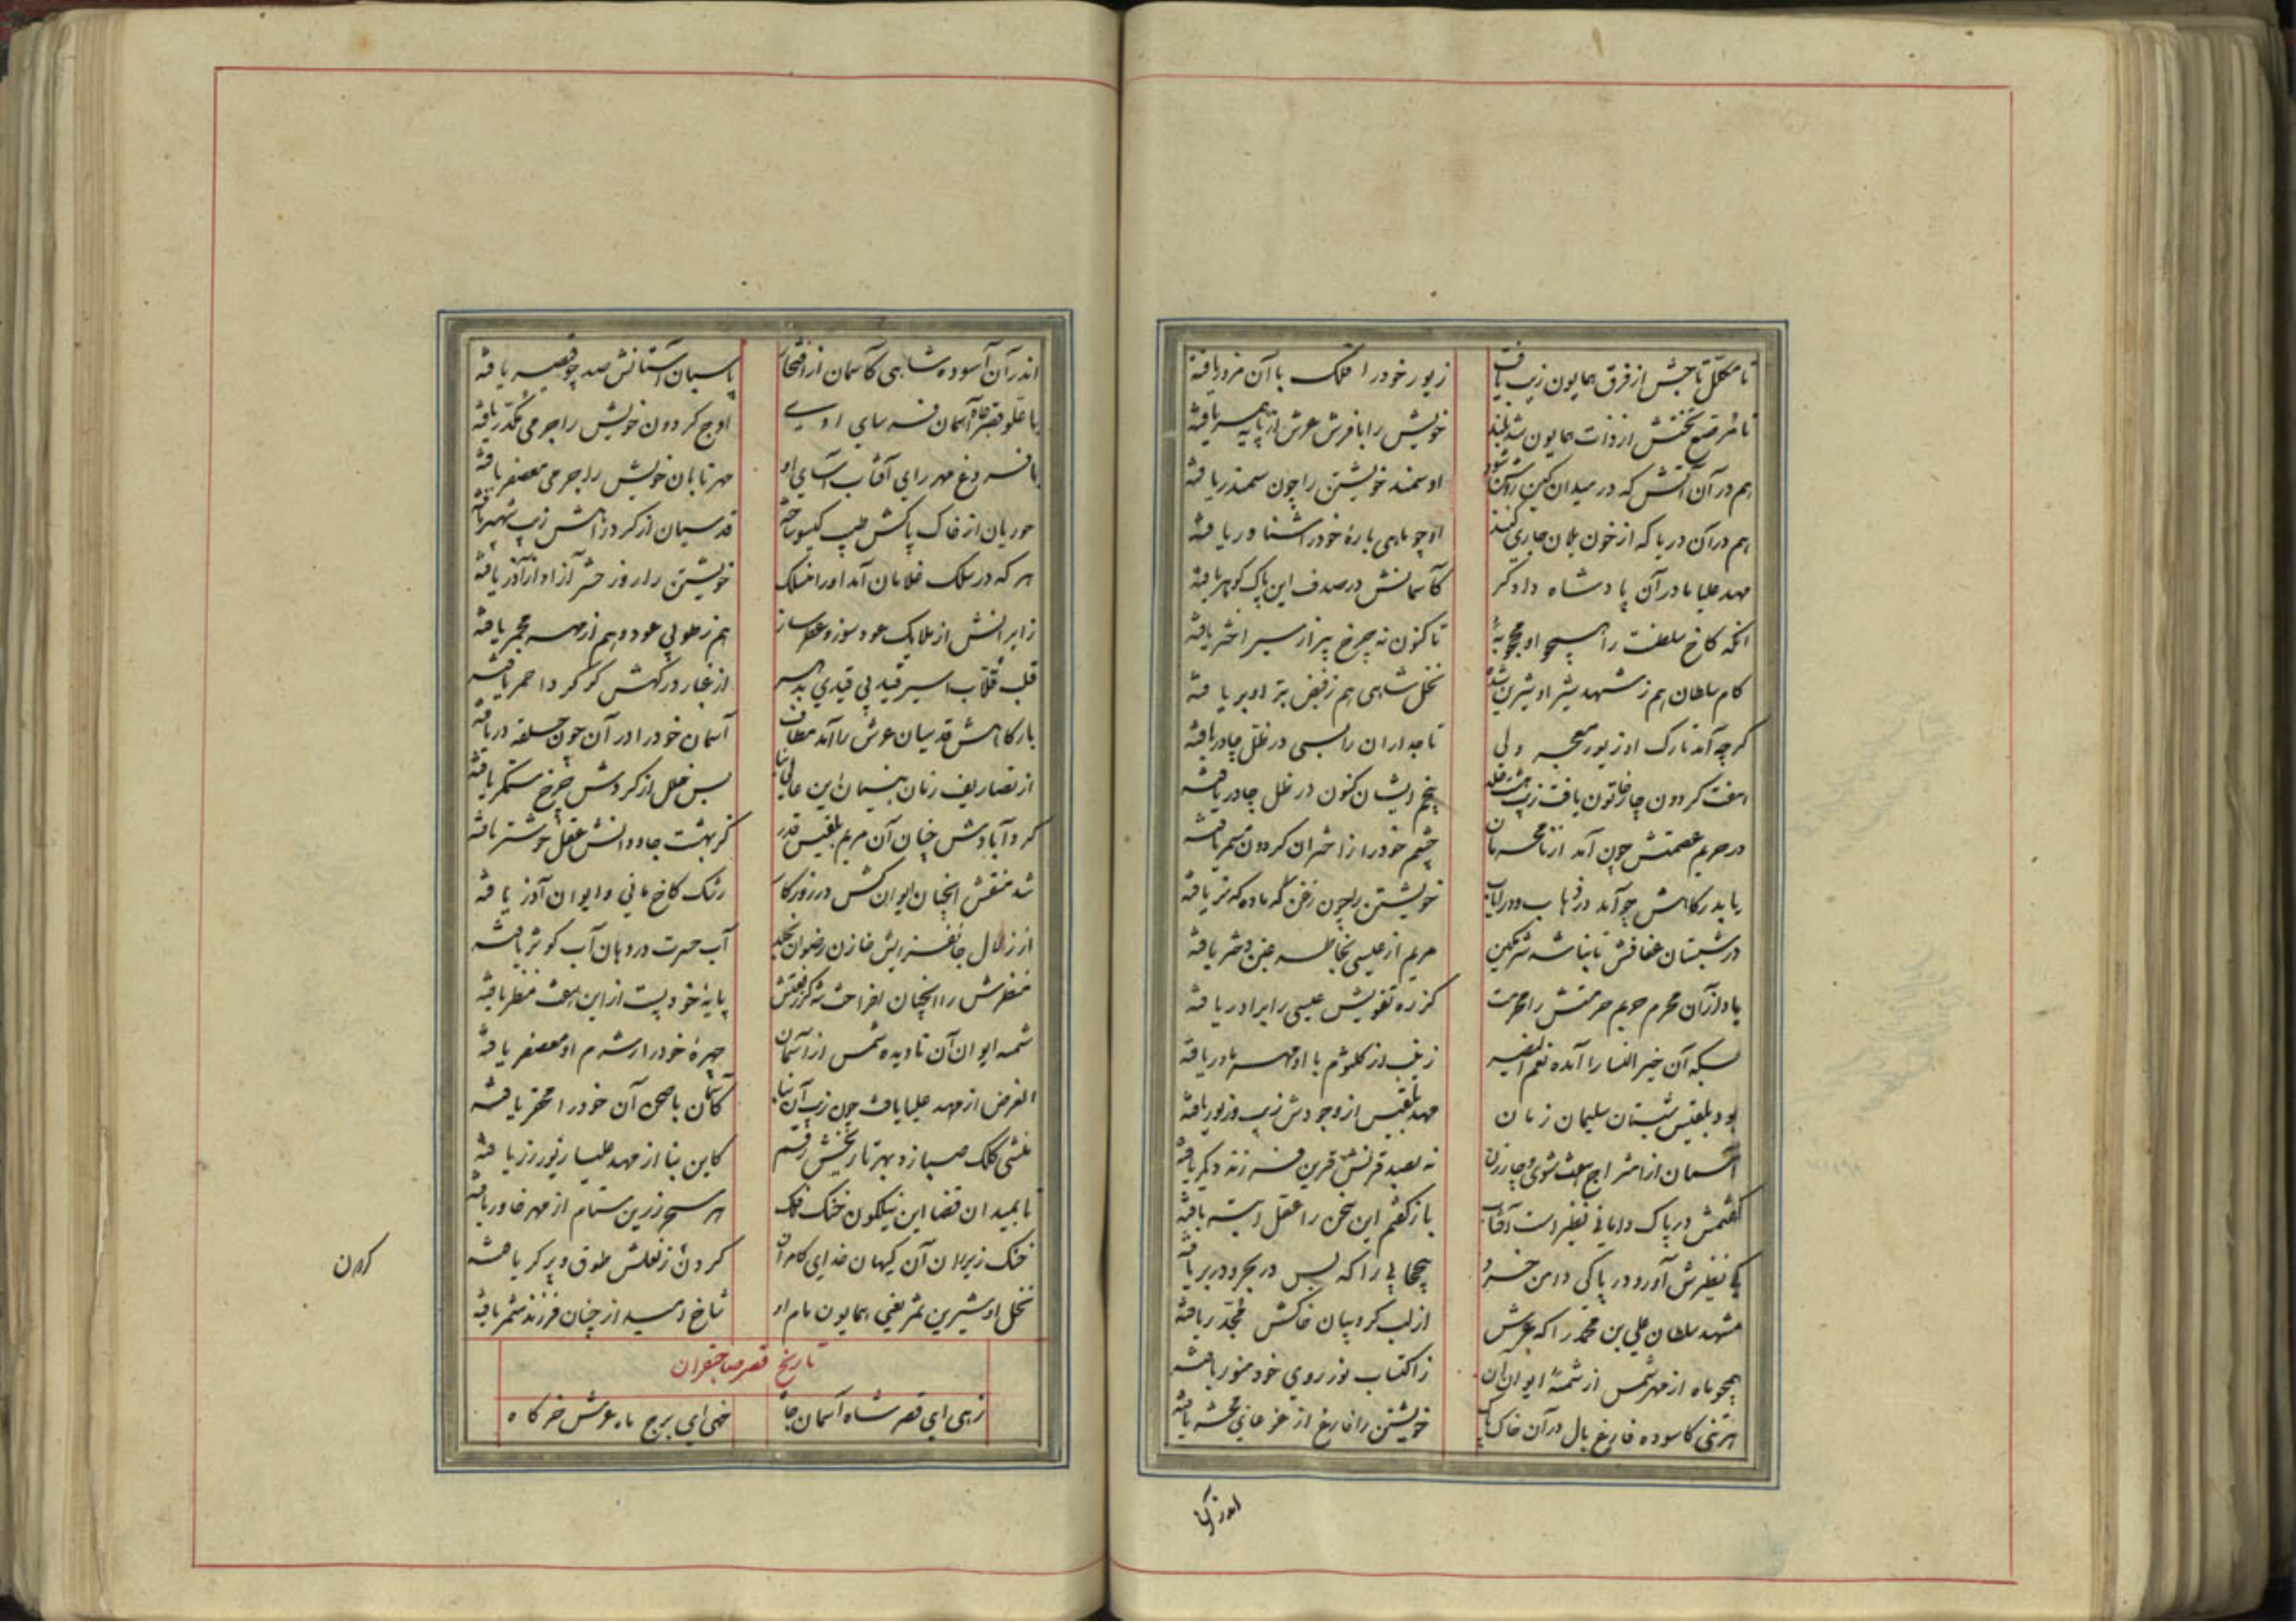 تا مکلل تاجش از فرق همایون زیب یافت زیور خود را فلک با آن مزور یافته
تا مرصع تختش از ذات همایون شد بلند خویش را با فرش عرش از پایه همسر یافته
هم در آن آتش که در میدان کین روشن شود او سمند خویشتن را چون سمندر یافته
هم در آن دریا که از خون یلان جاری کنند او چو ماهی بارهٔ خود را شناور یافته
مهد علیا مادر آن پادشاه دادگر کآسمانش در صدف این پاک گوهر یافته
انکه کاخ سلطنت را همچو او محجوبهٔ تا کنون نه چرخ پیر از سیر اختر یافته
کام سلطان هم ز شهد شیر او شیرین شده نخل شاهی هم ز فیض بر او بر یافته
گرچه آمد تارک او زیور معجر ولی تاجداران را بسی در ظل چادر یافته
هفت گردون چار خاتون یافت زیب هشت خلد پنجم ایشان کنون در ظل چادر یافته
در حریم عصمتش چون آمد از نامحرمان چشم خود را از اختران گردون مسمر یافته
یا بدرگاهش چو آمد در ذهاب و در ایاب خویشتن را چون زغن گه ماده گه نر یافته
در شبستان عفافش تا نباشد شرمگین مریم از عیسی بخاطر دختر یافته
یا دلارآن محرم حریم حرمتش را محرمت کز ره تقویش عیسی را برادر یافته
بسکه آن خیر النسا را آمده نعم النصیر زینب از کلثوم با او مهر مادر یافته
بود بلقیس شبستان سلیمان زمان مهد بلقیس از وجودش زیب و زیور یافته
آسمان از امتزاج هفت شوی و چار زن نه بصد قرنش قرین فرزند دیگر یافته
گفتمش در پاک دامانی نظیر است آفتاب باز گفتم این سخن را عقل ابتر یافته
کی نظیرش آورد در پاکی دامن خرد بیحجابی را که بس در بحر و در بر یافته
مشهد سلطان علی بن محمد را که عرش از لب کروبیان خاکش مجدر یافته
همچو ماه از مهر شمس از شمسهٔ ایوان آن ز اکتساب نور روی خود منور یافته
هر تنی کاسوده فارغ بال در آن خاک پاک خویشتن را فارغ از غوغای محشر یافته
اندر آن
اندر آن آسوده شاهی کآسمان از افتخار پاسبان آستانش صد چو قیصر یافته
با علو قصر جاه آسمان فرسای او اوج گردون خویش را جرمی مکدر یافته
با فروغ مهر رای آفتاب آسای او مهر تابان خویش را جرمی معصفر یافته
حوریان از خاک پاکش طیب گیسو ساخته قدسیان از گرد راهش زیب شهپر یافته
هر که در سلک غلامان آمد او را منسلک خویشتن را روز حشر آزاد از آذر یافته
زایرانش از ملایک عود سوز و عطر ساز هم ز طوبی عود و هم از مهر مجمر یافته
قلب قلاب اسیر قید بی قیدی از غبار درگهش گوگرد احمر یافته
بارگاهش قدسیان عرش را آمد مطاف آسمان خود را در آن چون حلقه در یافته
از تصاریف زمان بس خلل از گردش چرخ ستمگر یافته
کرد آبادش چنان آن مریم بلقیس قدر کز بهشت جاودانش عقل خوشتر یافته
شد منقش انچنان ایوانکش در روزگار رشک کاخ مانی و ایوان آذر یافته
از زلال جانفزایش خازن رضوان بخلد آب حسرت در دهان آب کوثر یافته
منظرش را انچنان افراخت شه کز رفعتش پایهٔ خود پست از این هفت منظر یافته
شمسهٔ ایوان آن تا دیده شمس از آسمان چهرهٔ خود را ز شرم او معصفر یافته
الغرض از مهد علیا یافت چون زیب آن بنا کآسمان با صحن آن خود را محقر یافته
منشی کلک صبا زد بهر تاریخش رقم کاین بنا از مهد علیا زیور و زر یافته
تا بمیدان قضا این نیلگون خنک فلک هر سحر زرین ستام از مهر خاور یافته
خنک زیر ران آن کیهان خدای کامران گردن از نعلش طوق و پرگر یافته
نخل او شیرین ثمر یعنی همایون مام او شاخ امید از چنان فرزند مثمر یافته
تاریخ قصر صاحبقران
زهی ای قصر شاه آسمان جاه خهی ای برج ماه عرش خرگاه